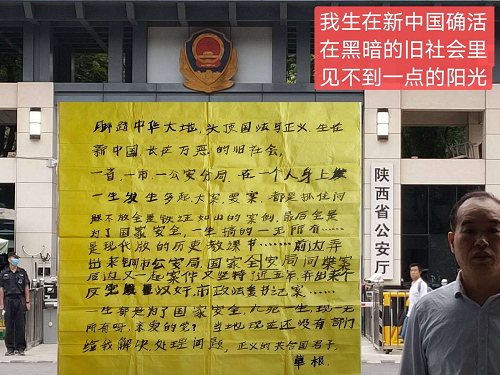 我生在新中国确活
在黑暗的旧社会里
见不到一点的阳光
脚踏中华大地,头顶国法与正义,生在
新中国长在万恶的旧社会,
一省、一市、一公安分局,在一个人身上
一生发生多起大案要案,都是抓住问
题不放全是铁证如山的案例,最后全是
为了国家安全,一生搞的一无所有……
是现代放的历史教课书………前边弄
出来铜市公安局国家全安局间谍案
后边又一起案件又坚持?近五年弄出来个
反党 汉奸,市政法委书记案……
一生都是为了国家安全,九死一生现一无
所有呀, 当地现在还没有部门
给我解决、处理问题,正义的共合国君子.
草根.
陕西省公安厅